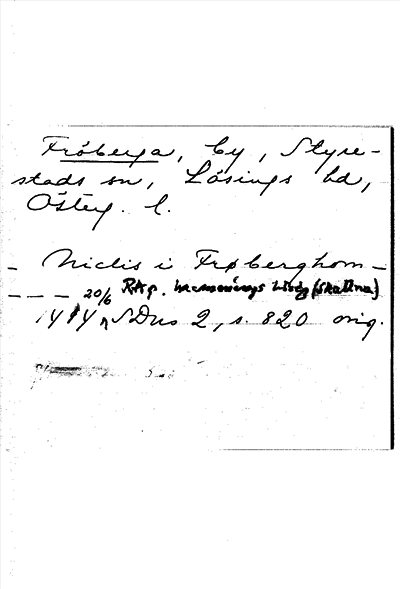 Fröberga, by, Styre-
stads sn, Lösings hd,
Österg. l.
– Niclis i Frøberghom –
– – – – 20/6 RAp.
1414 SDns 2, s. 820 orig.